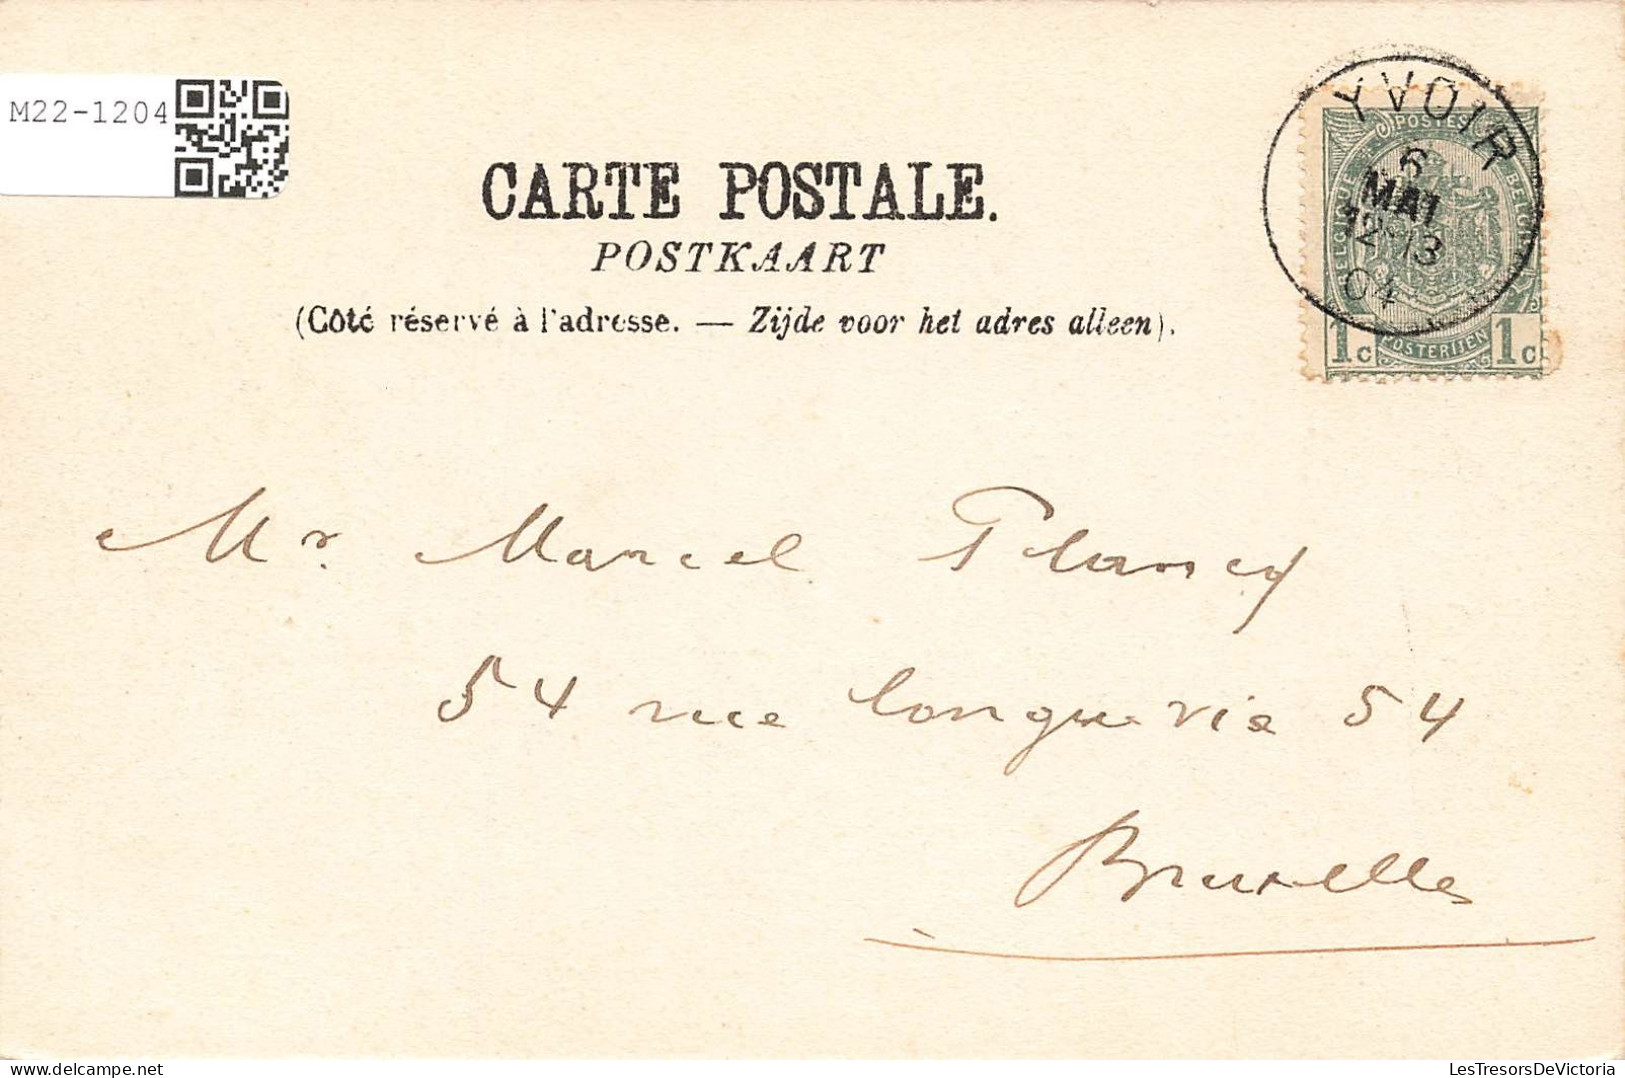 M22-1204
CARTE POSTALE.
POSTKAART
(Côté réservé à l'adresse. — Zijde voor het adres alleen).
YVOIR
6
MAI
12-13
04
POSTES
BELGIQUE
BELGIË
POSTERIJEN
1c 1c
Mr. Marcel Plancq
54 rue longue vie 54
Bruxelles
LesTresorsDeVictoria
delcampe.net